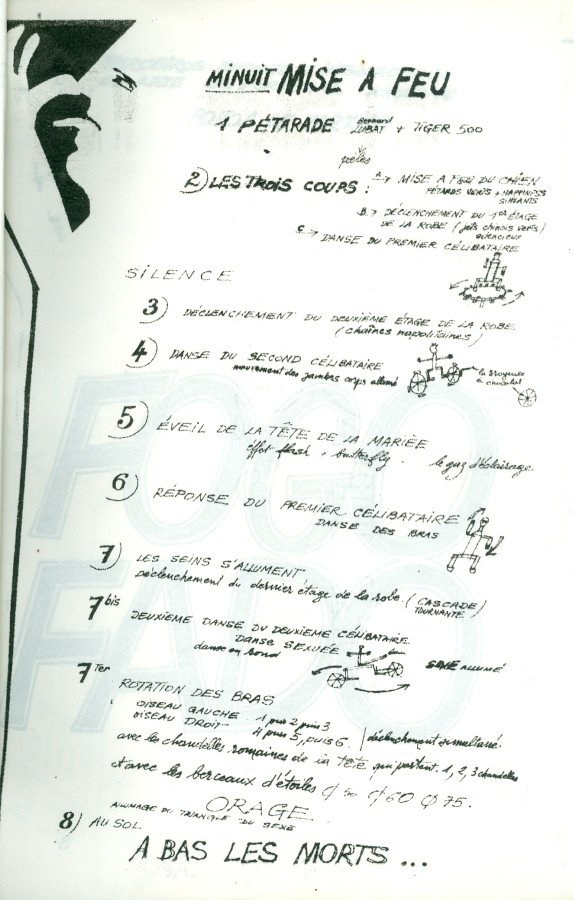 MINUIT MISE A FEU
1 PÉTARADE Bernard LUBAT + TIGER 500
2) LES TROIS COUPS : A → MISE A FEU DU CHIEN
PÉTARDS VERTS + HAPPINESS
SIFFLANTS
B → DÉCLENCHEMENT DU 1er ÉTAGE
DE LA ROBE (jets chinois verts)
silencieux
C → DANSE DU PREMIER CÉLIBATAIRE
SILENCE
3) DÉCLENCHEMENT DU DEUXIÈME ÉTAGE DE LA ROBE
(chaînes napolitaines)
4) DANSE DU SECOND CÉLIBATAIRE
mouvement des jambes corps allumé
la Broyeuse
à chocolat
5) ÉVEIL DE LA TÊTE DE LA MARIÉE
effet flash + butterfly. le gaz d'éclairage.
6) RÉPONSE DU PREMIER CÉLIBATAIRE
DANSE DES BRAS
7) LES SEINS S'ALLUMENT
Déclenchement du dernier étage de la robe. (CASCADE)
TOURNANTE
7bis DEUXIÈME DANSE DU DEUXIÈME CÉLIBATAIRE
DANSE SEXUÉE
danse en rond
SEXE ALLUMÉ
7Ter ROTATION DES BRAS
OISEAU GAUCHE 1 puis 2 puis 3
OISEAU DROIT 4 puis 5, puis 6. déclenchement simultané.
avec les chandelles romaines de la TÊTE qui partent. 1, 2, 3 chandelles
et avec les berceaux d'étoiles ∅ 50 ∅ 60 ∅ 75.
ORAGE
ALLUMAGE DU TRIANGLE DU SEXE
8) AU SOL
A BAS LES MORTS ...
FOGO
FADO